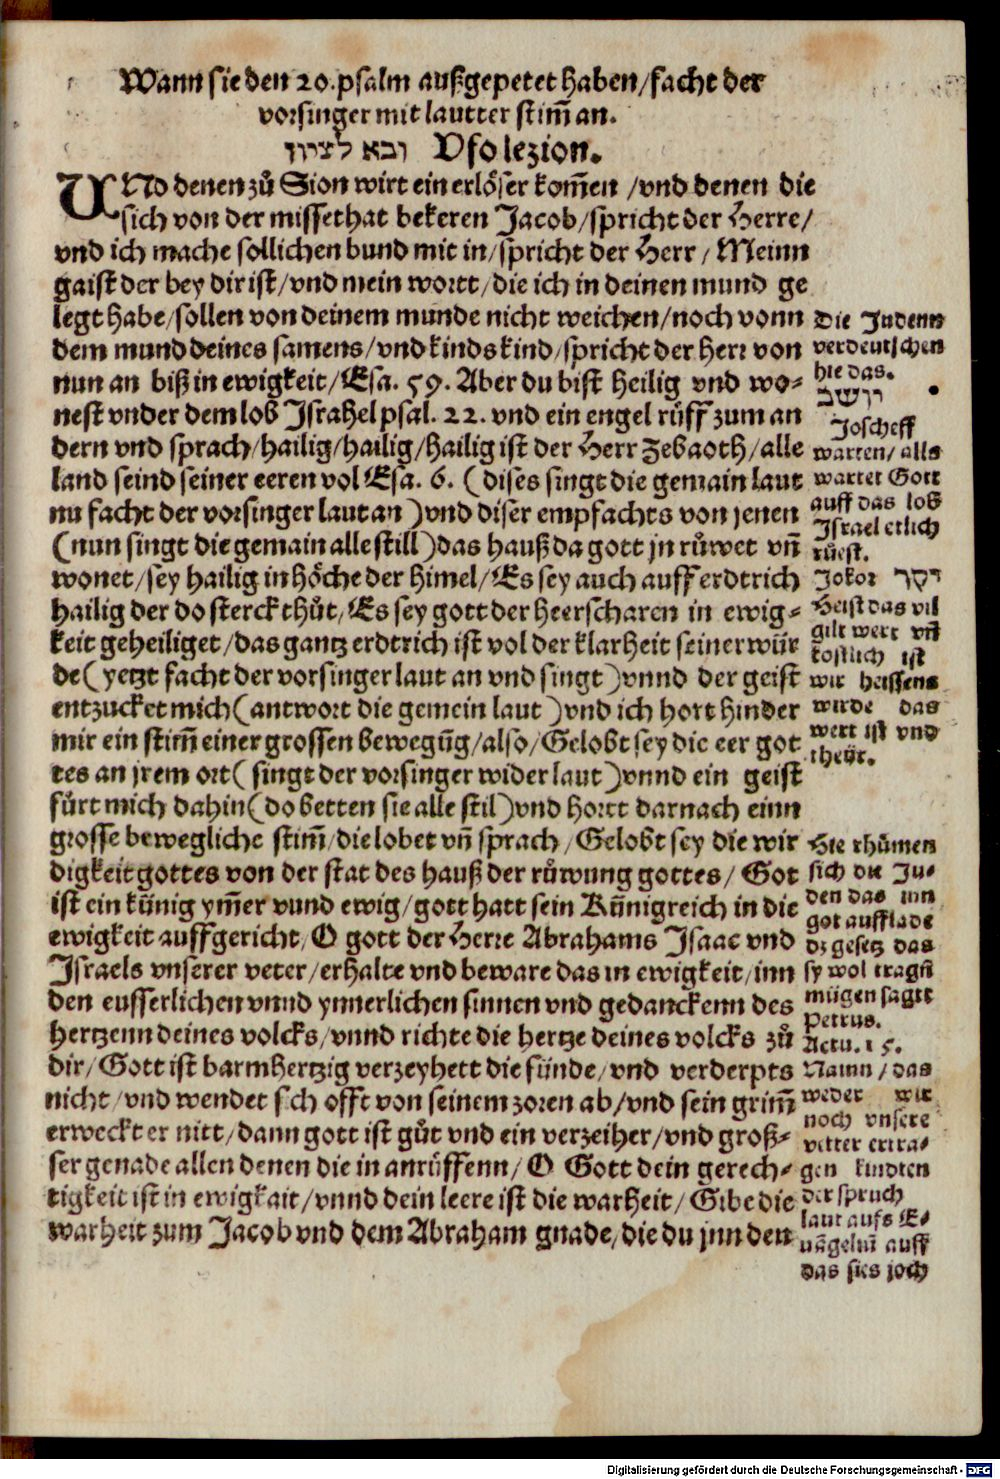 Wann sie den 20. psalm außgepetet haben/facht der
vorsinger mit lautter stim̃ an.
ובא לציון Vfo lezion.
UNd denen zů Sion wirt ein erlöser kom̃en /vnd denen die
sich von der missethat bekeren Jacob/spricht der Herre/
vnd ich mache sollichen bund mit in/spricht der Herr/ Meinn
gaist der bey dir ist/vnd mein wortt/die ich in deinen mund ge
legt habe/sollen von deinem munde nicht weichen/noch vonn
dem mund deines samens/vnd kindskind/spricht der herr von
nun an biß in ewigkeit/Esa. 59. Aber du bist heilig vnd wo-
nest vnder dem lob Jsrahel psal. 22. vnd ein engel rüff zum an
dern vnd sprach/hailig/hailig/hailig ist der Herr Zebaoth/alle
land seind seiner eeren vol Esa. 6. (dises singt die gemain laut
nu facht der vorsinger laut an)vnd diser empfachts von jenen
(nun singt die gemain alle still)das hauß da gott jn růwet vñ
wonet/sey hailig in höche der himel/Es sey auch auff erdtrich
hailig der do sterck thůt/Es sey gott der heerscharen in ewig-
keit geheiliget/das gantz erdtrich ist vol der klarheit seiner wür
de(yetzt facht der vorsinger laut an vnd singt)vnnd der geist
entzucket mich(antwort die gemein laut)vnd ich hort hinder
mir ein stim̃ einer grossen bewegũg/also/Gelobt sey die eer got
tes an jrem ort(singt der vorsinger wider laut)vnnd ein geist
fürt mich dahin(do betten sie alle stil)vnd hortt darnach einn
grosse bewegliche stim̃/die lobet vñ sprach/Gelobt sey die wir
digkeit gottes von der stat des hauß der růwung gottes/ Got
ist ein künig ym̃er vund ewig/gott hatt sein Künigreich in die
ewigkeit auffgericht/O gott der Herre Abrahams Jsaac vnd
Jsraels vnserer veter/erhalte vnd beware das in ewigkeit/inn
den eusserlichen vnnd ynnerlichen sinnen vnd gedanckenn des
hertzenn deines volcks/vnnd richte die hertze deines volcks zů
dir/Gott ist barmhertzig verzeyhett die sünde/vnd verderpts
nicht/vnd wendet sich offt von seinem zoren ab/vnd sein grim̃
erweckt er nitt/dann gott ist gůt vnd ein verzeiher/vnd groß-
ser genade allen denen die in anrüffenn/O Gott dein gerech-
tigkeit ist in ewigkait/vnnd dein leere ist die warheit/Gibe die
warheit zum Jacob vnd dem Abraham gnade/die du jnn den
Die Judenn
verdeutschen
hie das.
יושב
Joscheff
warten/alls
wartet Gott
auff das lob
Jsrael etlich
růest.
Jokor יקר
Heist das vil
gilt wert vñ
kostlich ist
wir heissens
wirde das
wert ist vnd
theür.
Hie rhůmen
sich die Ju-
den das inn
got aufflade
dz gesetz das
sy wol tragñ
mügen sagtt
Petrus.
Actu. 15.
Nainn/das
weder wir
noch vnsere
vetter ertra-
gen kindten
der spruch
laut aufs E-
uãgeliũ auff
das sies joch
Digitalisierung gefördert durch die Deutsche Forschungsgemeinschaft - DFG